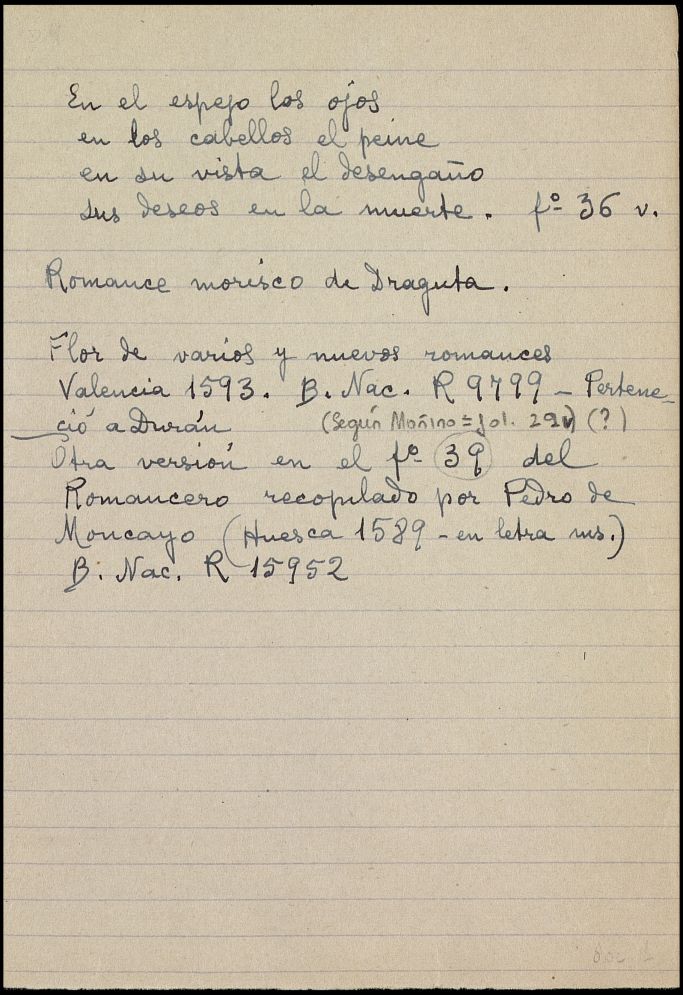 En el espejo los ojos
en los cabellos el peine
en su vista el desengaño
sus deseos en la muerte. fº 36 v.
Romance morisco de Draguta.
Flor de varios y nuevos romances
Valencia 1593. B. Nac. R 9799 - Pertene-
ció a Durán (Según Moñino = fol. 29v) (?)
Otra versión en el fº 39 del
Romancero recopilado por Pedro de
Moncayo (Huesca 1589 - en letra ms.)
B. Nac. R 15952